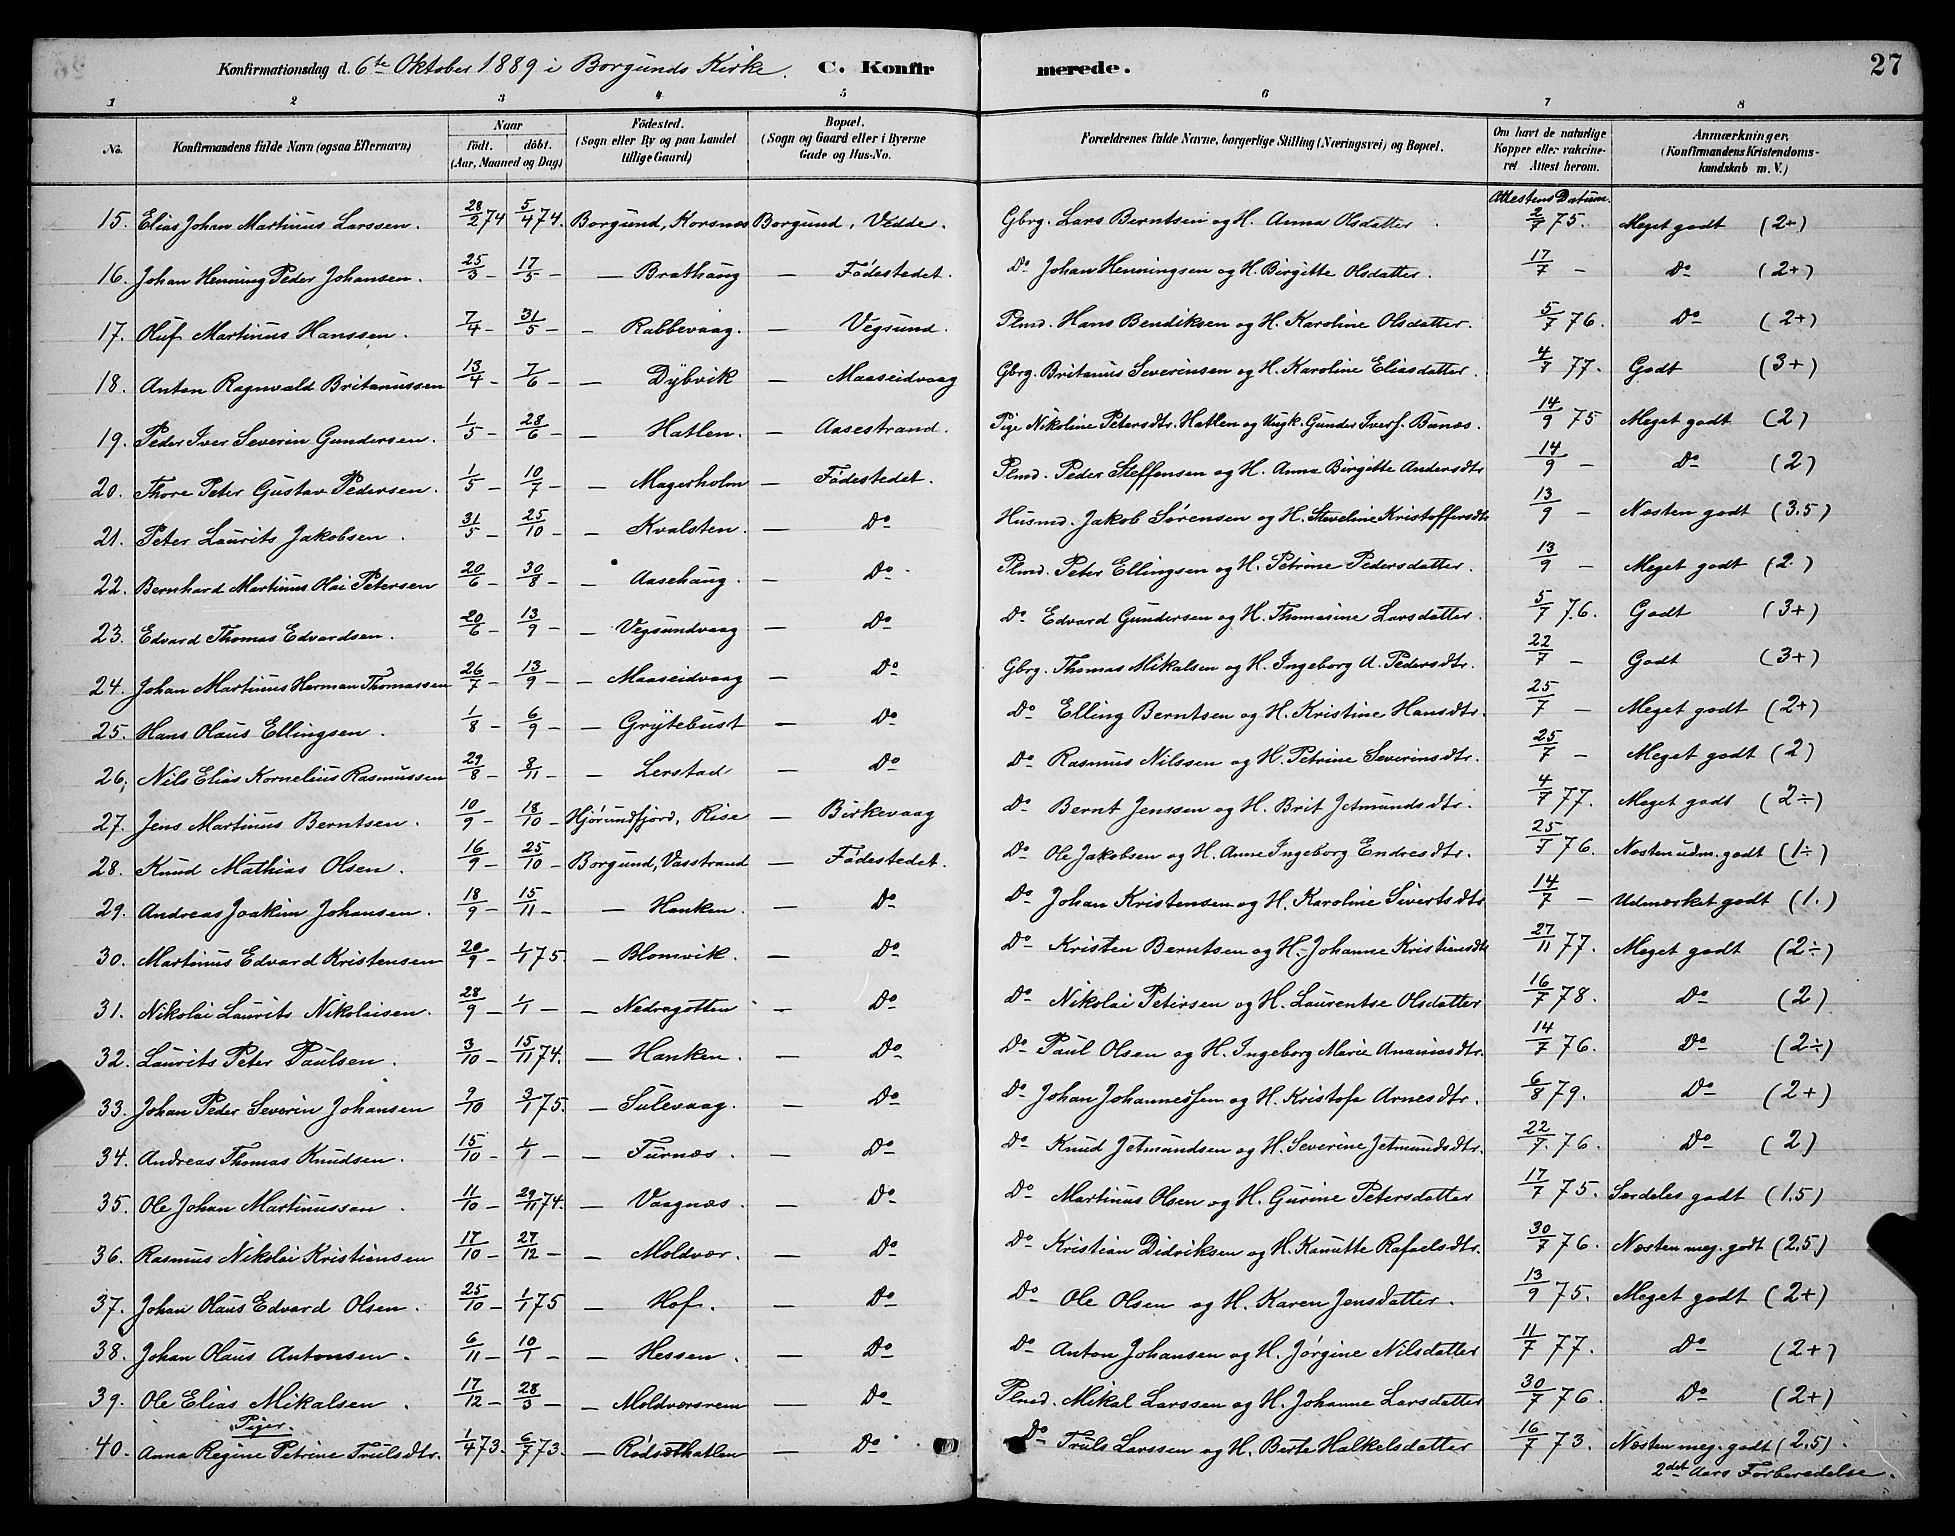 Konfirmationsdag d. 6te Oktober 1889 i Borgunds Kirke. C. Konfirmerede. 27
1 2 3 4 5 6 7 8
No. Konfirmandens fulde Navn (ogsaa Efternavn) Naar födt. döbt. (Aar, Maaned og Dag) Födested. (Sogn eller By og paa Landet tillige Gaard) Bopæl. (Sogn og Gaard eller i Byerne Gade og Hus-No. Forældrenes fulde Navne, borgerlige Stilling (Næringsvei) og Bopæl. Om havt de naturlige Kopper eller vakcineret Attest herom. Anmærkninger, (Konfirmandens Kristendomskundskab m. V.)
Attestens Datum.
15. Elias Johan Martinus Larssen. 28/2 74 5/4 74. Borgund, Korsnes Borgund, Vedde. Gbrg. Lars Berntsen og H. Anna Olsdatter 2/7 75. Meget godt (2+)
16. Johan Henning Peder Johansen. 25/3 – 17/5 – — Brathaug — Födestedet. Do Johan Henningsen og H. Birgitte Olsdatter. 17/7 – Do (2+)
17. Oluf Martinus Hanssen. 7/4 – 31/5 – — Rabbevaag. — Vegsund. Plmd. Hans Bendiksen og H. Karoline Olsdatter. 5/7 76. Do (2+)
18. Anton Ragnvald Britanussen 13/4 – 7/6 – — Dybvik — Maaseidvaag Gbrg. Britanus Severinsen og H. Karoline Eliasdatter. 4/7 77. Godt (3+)
19. Peder Iver Severin Gundersen. 1/5 – 28/6 – — Hatlen. — Aasestrand. Pige Nikoline Petersdtr. Hatlen og Ungk. Gunder Ivers. Bunes. 14/9 75 Meget godt (2)
20. Thore Peter Gustav Pedersen. 1/5 – 10/7 – — Magerholm — Födestedet. Plmd. Peder Steffensen og H. Anna Birgitte Andersdtr 14/9 – Do (2)
21. Peter Laurits Jakobsen. 31/5 – 25/10 – — Kvalsten. — Do Husmd. Jakob Sørensen og H. Steveline Kristoffersdtr 13/9 – Næsten godt (3.5)
22. Bernhard Martinus Olai Petersen 20/6 – 30/8 – — Aasehaug. — Do Plmd. Peter Ellingsen og H. Petrine Pedersdatter. 13/9 – Meget godt (2)
23. Edvard Thomas Edvardsen. 20/6 – 13/9 – — Vegsundvaag — Do Do Edvard Gundersen og H. Thomasine Larsdatter. 5/7 76. Godt (3+)
24. Johan Martinus Herman Thomassen 26/7 – 13/9 – — Maaseidvaag — Do Gbrg. Thomas Mikalsen og H. Ingeborg A. Pedersdtr. 22/7 – Godt (3+)
25. Hans Olaus Ellingsen. 1/8 – 6/9 – — Grytebust — Do Do Elling Berntsen og H. Kristine Hansdtr. 25/7 – Meget godt (2+)
26. Nils Elias Kornelius Rasmussen 29/8 – 8/11 – — Lerstad — Do Do Rasmus Nilssen og H. Petrine Severinsdtr. 25/7 – Meget godt (2)
27. Jens Martinus Berntsen. 10/9 – 18/10 – Hjørundfjord, Rise — Birkevaag Do Bernt Jenssen og H. Brit Jetmundsdtr. 4/7 77. Meget godt (2÷)
28. Knud Mathias Olsen. 16/9 – 25/10 – Borgund, Vasstrand — Födestedet. Do Ole Jakobsen og H. Anne Ingeborg Endresdtr. 25/7 76. Næsten udm. godt (1÷)
29. Andreas Joakim Johansen. 18/9 – 15/11 – — Hanken. — Do Do Johan Kristensen og H. Karoline Sivertsdtr 14/7 – Udmærket godt (1.)
30. Martinus Edvard Kristensen 20/9 – 1/1 75. — Blomvik. — Do Do Kristen Berntsen og H. Johanne Kristiansdtr 27/11 77. Meget godt (2÷)
31. Nikolai Laurits Nikolaisen. 28/9 – 1/1 – — Nedregotten — Do Do Nikolai Petersen og H. Laurentse Olsdatter 16/7 78. Do (2)
32. Laurits Peter Paulsen. 3/10 – 15/11 74. — Hanken. — Do Do Paul Olsen og H. Ingeborg Marie Ananiasdtr. 14/7 76. Do (2÷)
33. Johan Peder Severin Johansen 9/10 3/1 75. — Sulevaag. — Do Do Johan Johannessen og H. Kristofa Arnesdtr. 6/8 79. Do (2+)
34. Andreas Thomas Knudsen. 15/10 – 1/1 – — Furnes. — Do Do Knud Jetmundsen og H. Severine Jetmundsdtr. 22/7. 76. Do (2)
35. Ole Johan Martinussen. 11/10 – 29/11 74. — Vaagnes. — Do Do Martinus Olsen og H. Gurine Petersdatter 17/7 75. Særdeles godt (1.5)
36. Rasmus Nikolai Kristiansen 17/10 – 27/12 – — Moldvær. — Do Do Kristian Didriksen og H. Kanutte Rafaelsdtr. 30/7 76. Næsten meg. godt (2.5)
37. Johan Olaus Edvard Olsen. 25/10 – 1/1 75 — Hof. — Do Do Ole Olsen og H. Karen Jensdatter. 13/9 75. Meget godt (2+)
38. Johan Olaus Antonsen. 6/11 – 10/1 – — Hessen. — Do Do Anton Johansen og H. Jörgine Nilsdatter 11/7 77. Do (2+)
39. Ole Elias Mikalsen. 17/12 – 28/3 – — Moldværsrem — Do Plmd. Mikal Larssen og H. Johanne Larsdatter 30/7 76. Do (2+)
Piger.
40. Anna Regine Petrine Trulsdtr. 1/4 73. 6/7 73. — Rödsæthatlen — Do Do Truls Larssen og H. Berte Halkelsdatter 16/7 73. Næsten meg. godt (2.5).
2det Aars Forberedelse.